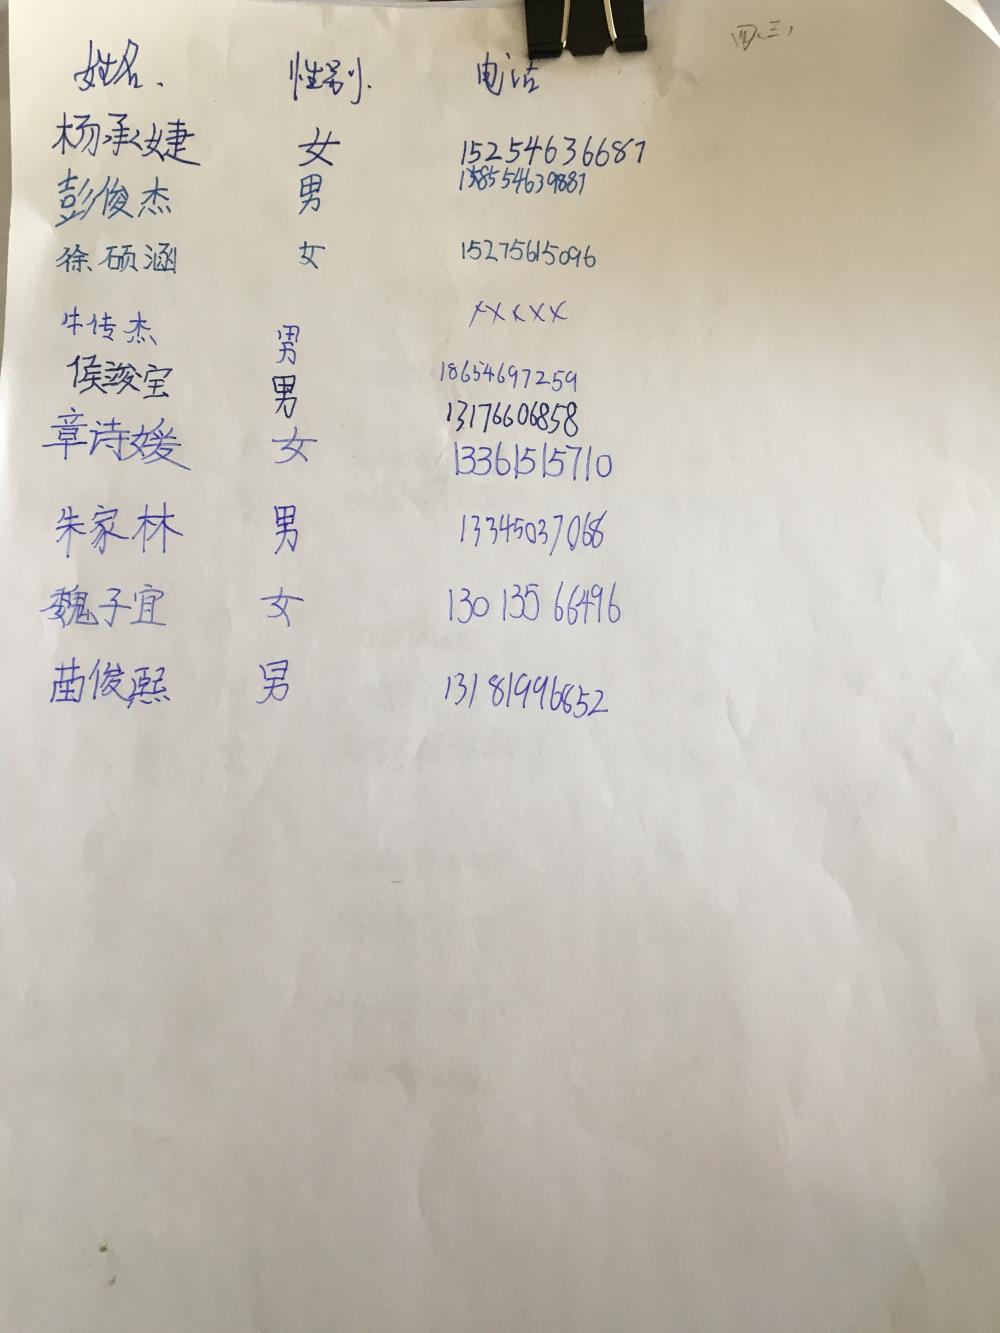 四、三，
姓名. 性别. 电话
杨承婕 女 15254636687
彭俊杰 男 138554639887
徐硕涵 女 15275615096
牛传杰 男 ×××××
18654697259
侯骏宝 男 13176606858
章诗媛 女 13361515710
朱家林 男 13345037068
魏子宜 女 13013566496
苗俊熙 男 13181996852